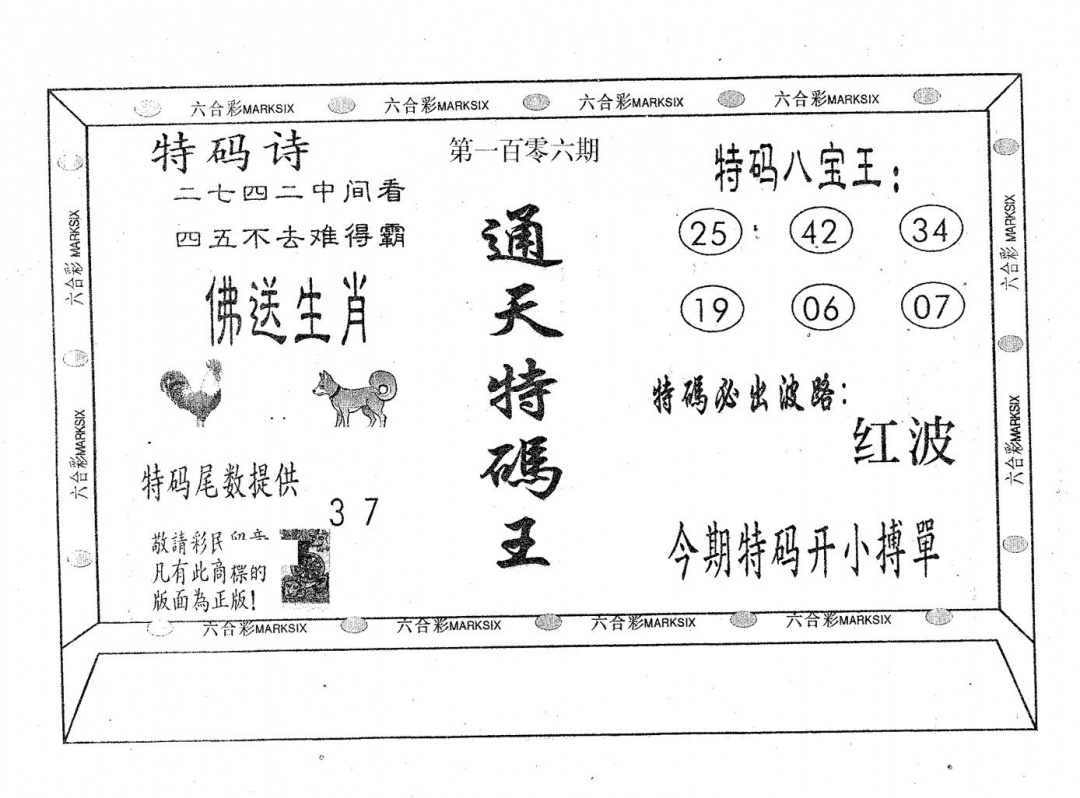 六合彩MARKSIX
六合彩MARKSIX
六合彩MARKSIX
六合彩MARKSIX
六合彩 MARKSIX
六合彩MARKSIX
特码诗
二七四二中间看
四五不去难得霸
佛送生肖
特码尾数提供
3 7
敬請彩民
凡有此商標的
版面為正版!
第一百零六期
通天特碼王
特码八宝王:
25 42 34
19 06 07
特碼必出波路:
红波
今期特码开小搏單
六合彩 MARKSIX
六合彩MARKSIX
六合彩MARKSIX
六合彩MARKSIX
六合彩MARKSIX
六合彩MARKSIX